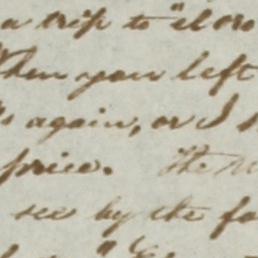 a trip to "el oro
When you left
again, or I
price. The
see by the